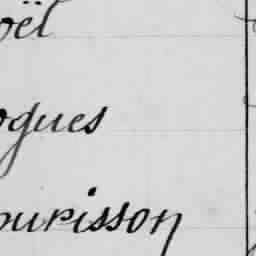 oël
ogues
ourisson